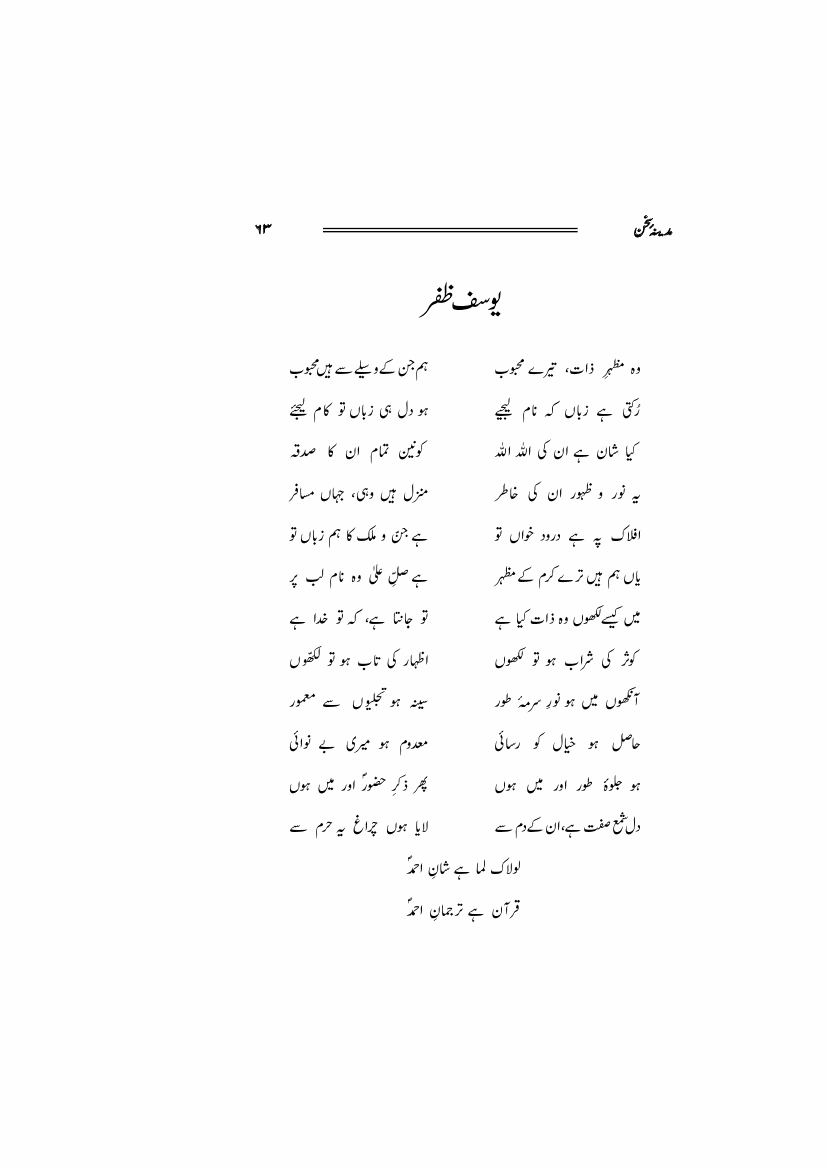 مدینۂ سخن ۶۳
یوسف ظفر
وہ مظہرِ ذات، تیرے محبوب ہم جن کے وسیلے سے ہیں محبوب
رُکتی ہے زباں کہ نام لیجیے ہو دل ہی زباں تو کام لیجئے
کیا شان ہے ان کی اللہ اللہ کونین تمام ان کا صدقہ
یہ نور و ظہور ان کی خاطر منزل ہیں وہی، جہاں مسافر
افلاک پہ ہے درود خواں تو ہے جن و ملک کا ہم زباں تو
یاں ہم ہیں ترے کرم کے مظہر ہے صلِّ علیٰ وہ نام لب پر
میں کیسے لکھوں وہ ذات کیا ہے تو جانتا ہے، کہ تو خدا ہے
کوثر کی شراب ہو تو لکھوں اظہار کی تاب ہو تو لکھّوں
آنکھوں میں ہو نورِ سرمۂ طور سینہ ہو تجلیوں سے معمور
حاصل ہو خیال کو رسائی معدوم ہو میری بے نوائی
ہو جلوۂ طور اور میں ہوں پھر ذکرِ حضورؐ اور میں ہوں
دل شمع صفت ہے، ان کے دم سے لایا ہوں چراغ یہ حرم سے
لولاک لما ہے شانِ احمدؐ
قرآن ہے ترجمانِ احمدؐ